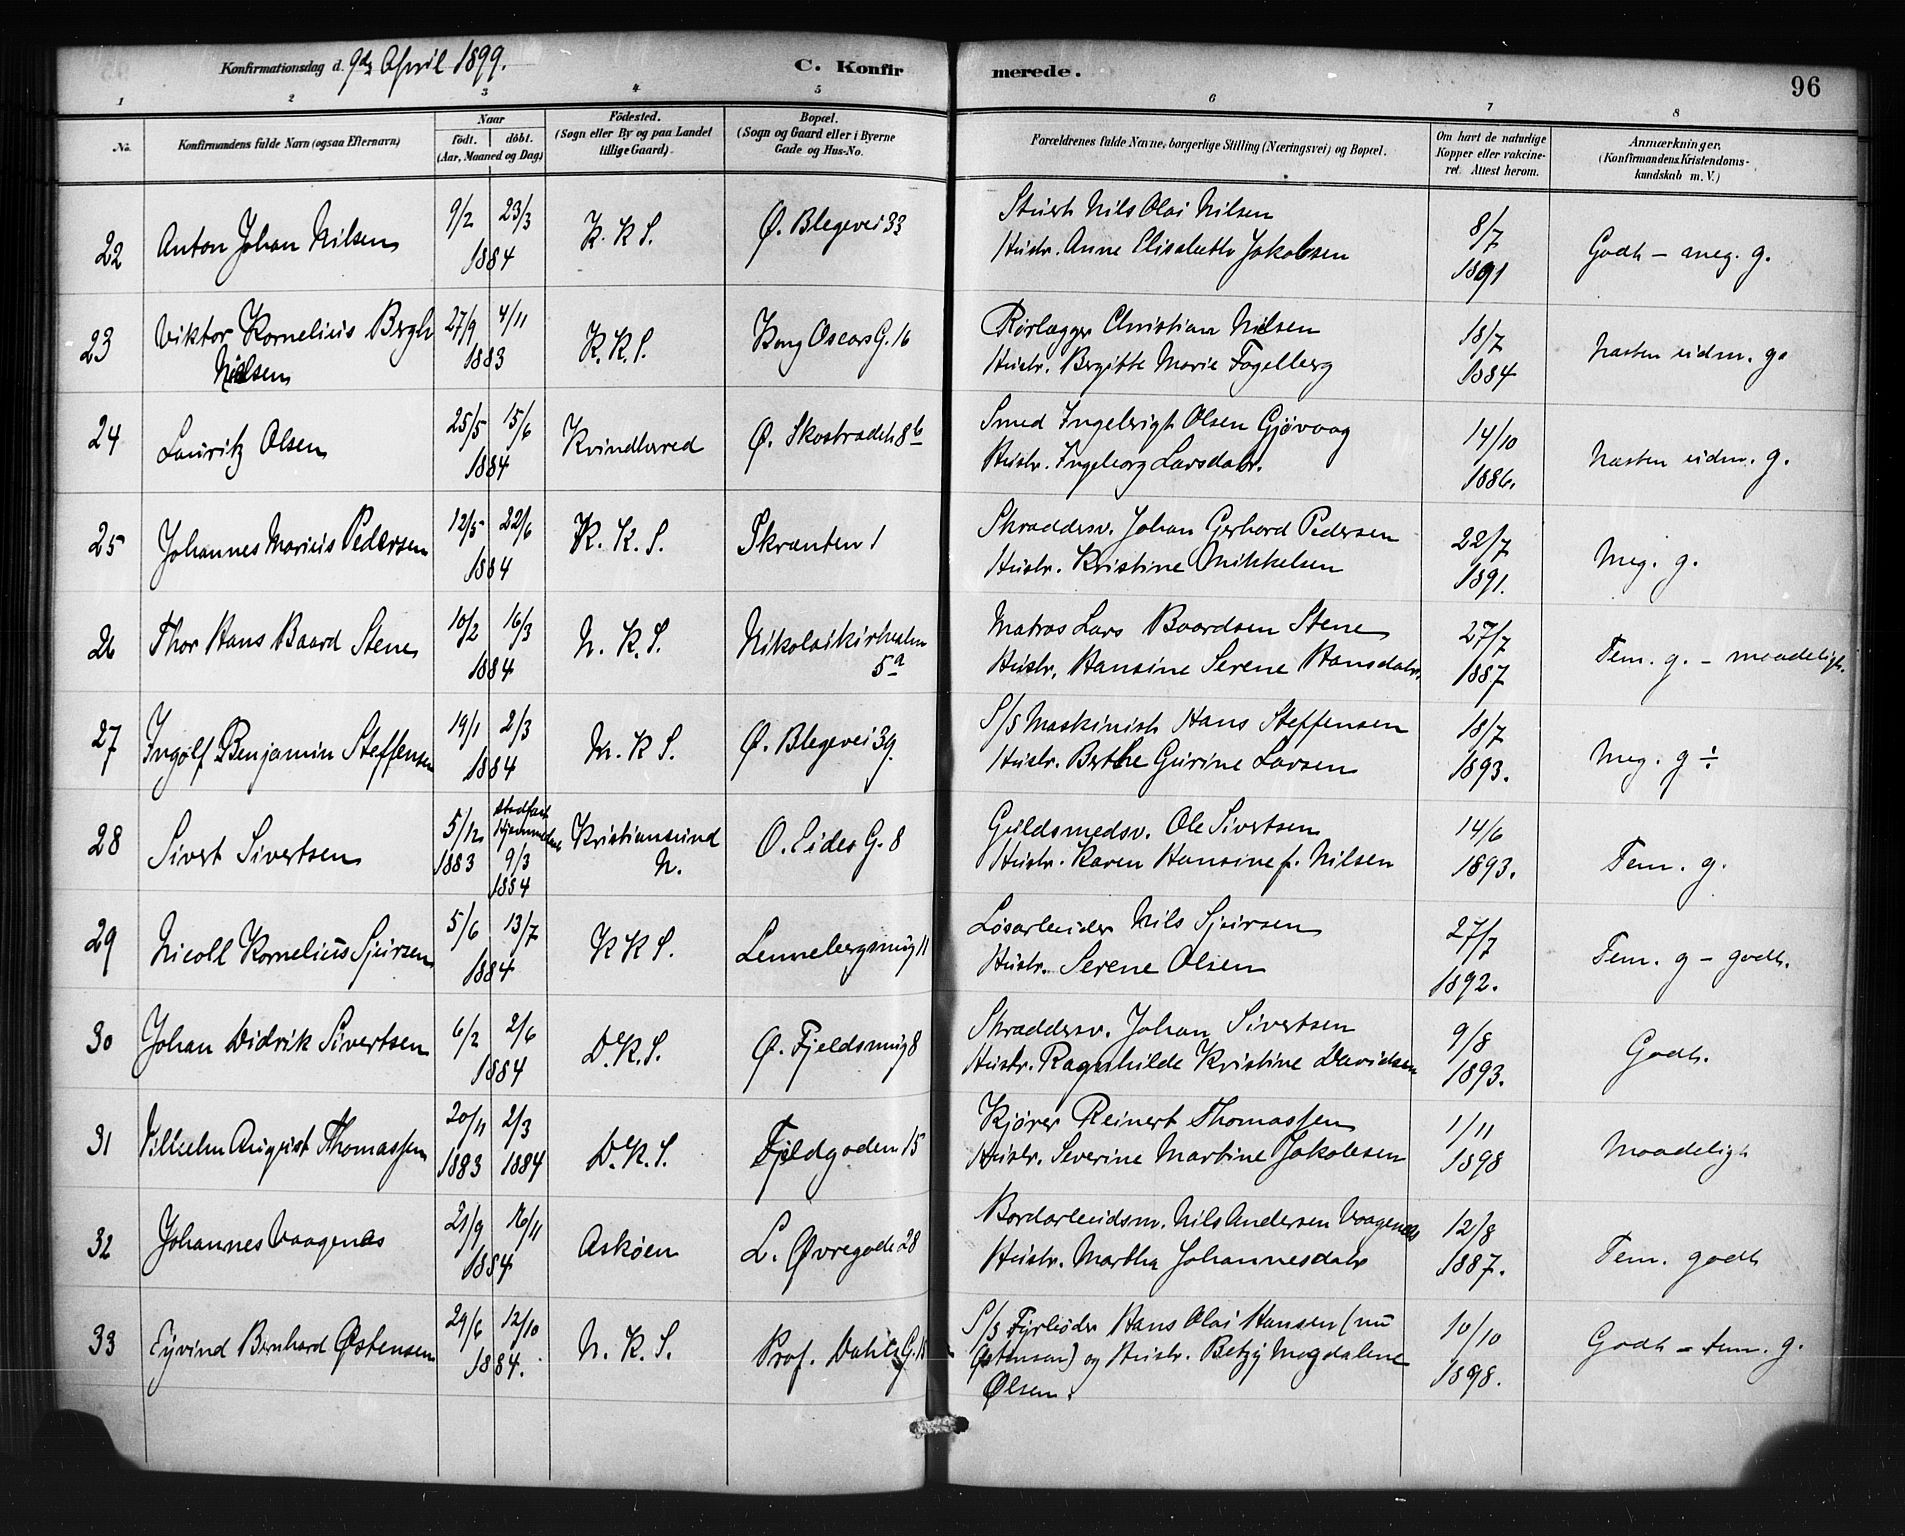 Konfirmationsdag d. 9de April 1899.
C. Konfirmerede.
96
1 2 3 4 5 6 7 8
No.
Konfirmandens fulde Navn (ogsaa Efternavn)
Naar
födt. döbt.
(Aar, Maaned og Dag)
Födested.
(Sogn eller By og paa Landet
tillige Gaard).
Bopæl.
(Sogn og Gaard eller i Byerne
Gade og Hus-No.
Forældrenes fulde Navne, borgerlige Stilling (Næringsvei) og Bopæl.
Om havt de naturlige
Kopper eller vakcine-
ret. Attest herom.
Anmærkninger.
(Konfirmandens Kristendoms-
kundskab m. V.)
22 Anton Johan Nilsen 9/2 23/3 1884 K. K S. Ø. Blegevei 33
Stuert Nils Olai Nilsen
Hustr. Anne Elisabeth Jakobsen
8/7 1891 Godt - meg. g.
23 Viktor Kornelius Bergh
Nielsen
27/9 4/11 1883 K. K. S. Kong Oscars G. 16
Rørlægger Christian Nielsen
Hustr. Bergitte Marie Fogelberg
18/7 1884 Næsten udm. go
24 Lauritz Olsen 25/5 15/6 1884 Kvindherred Ø. Skostrædet 8b
Smed Ingebrigt Olsen Gjøvaag
Hustr. Ingeborg Larsdatr.
14/10 1886. Næsten udm. g.
25 Johannes Marius Pedersen 12/5 22/6 1884 K. K. S. Skranten 1
Skræddersv. Johan Gerhard Pedersen
Hustr. Kristine Mikkelsen
22/7 1891. Meg. g.
26 Thor Hans Baard Stene 10/2 16/3 1884 N. K. S. Nikolaikirkealm
5a
Matros Lars Baardsen Stene
Hustr. Hansine Serene Hansdatr.
27/7 1887 Tem. g. - maadeligt.
27 Ingolf Benjamin Steffensen 19/1 2/3 1884 N. K S. Ø. Blegevei 39.
S/S Maskinist Hans Steffensen
Hustr. Berthe Gurine Larsen
18/7 1893. Meg. g ÷
28 Sivert Sivertsen 5/12 1883 stadfæst
Hjemmedaab
9/3 1884 Kristiansund
N. O. Eides G. 8
Guldsmedsv. Ole Sivertsen
Hustr. Karen Hansine f. Nilsen
14/6 1893. Tem. g.
29 Nicoll Kornelius Sjursen 5/6 13/7 1884 K K S. Lennebergsmug 11
Løsarbeider Nils Sjursen
Hustr. Serene Olsen
27/7 1892. Tem. g - godt.
30 Johan Didrik Sivertsen 6/2 2/6 1884 D. K. S. Ø. Fjeldsmug 8
Skræddersv. Johan Sivertsen
Hustr. Ragnhilde Kristine Davidsen
9/8 1893. Godt.
31 Vilhelm August Thomassen 20/11 1883 2/3 1884 D. K. S. Fjeldgaden 15
Kjører Reinert Thomassen
Hustr. Severine Martine Jakobsen
1/11 1898 Maadeligt
32 Johannes Vaagenæs 21/9 16/11 1884 Askøen L. Øvregade 28
Bordarbeidsm. Nils Andersen Vaagenæs
Hustr. Martha Johannesdatr
12/8 1887. Tem. godt
33 Eyvind Bernhard Østensen 29/6 12/10 1884. N. K. S. Prof. Dahls G.
S/S Fyrbøder Hans Olai Hansen (nu
Østensen) og Hustr. Betzy Magdalene
Olsen.
10/10 1898. Godt - tem. g.